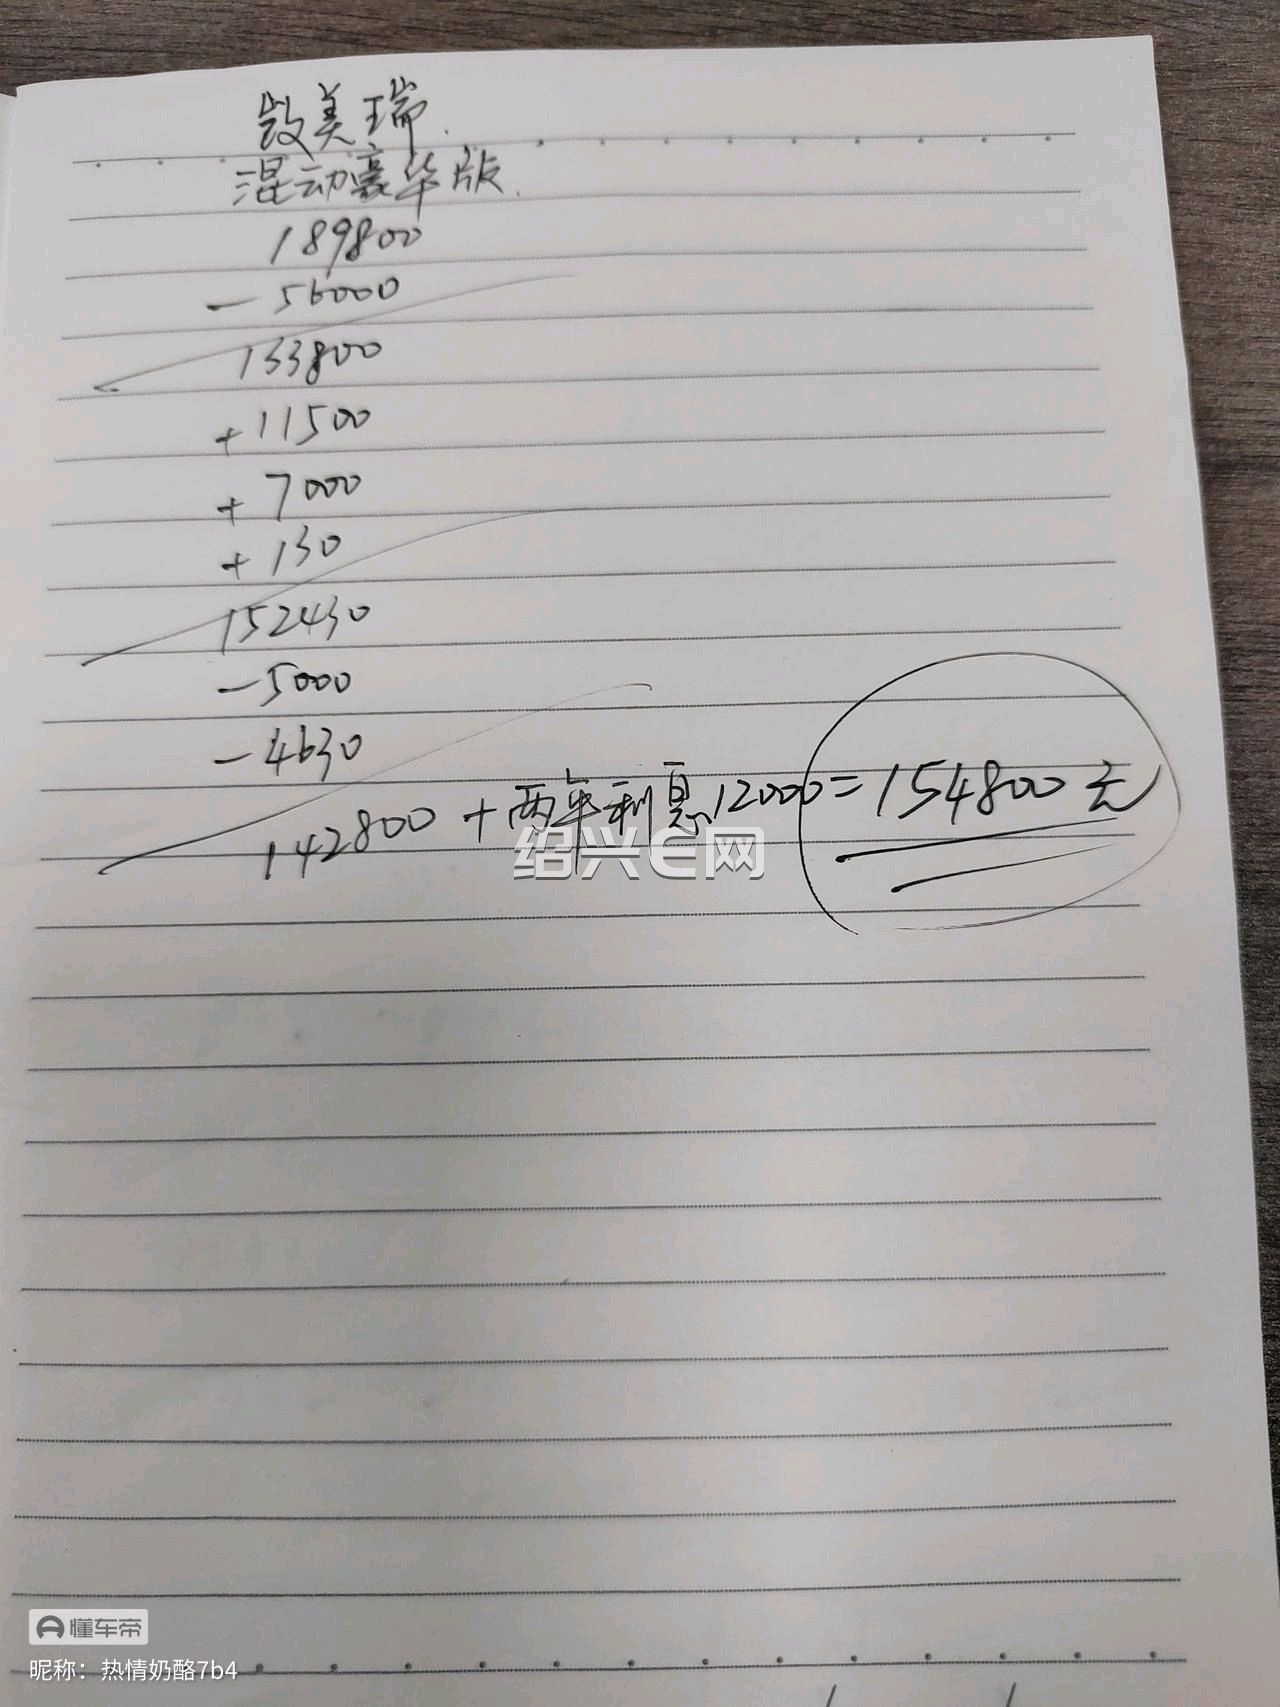 美瑞
混动豪华版
189800
- 56000
133800
+ 11500
+ 7000
+ 130
152430
- 5000
- 4630
142800 + 两年利息12000 = 154800元
绍兴E网
懂车帝
昵称：热情奶酪7b4